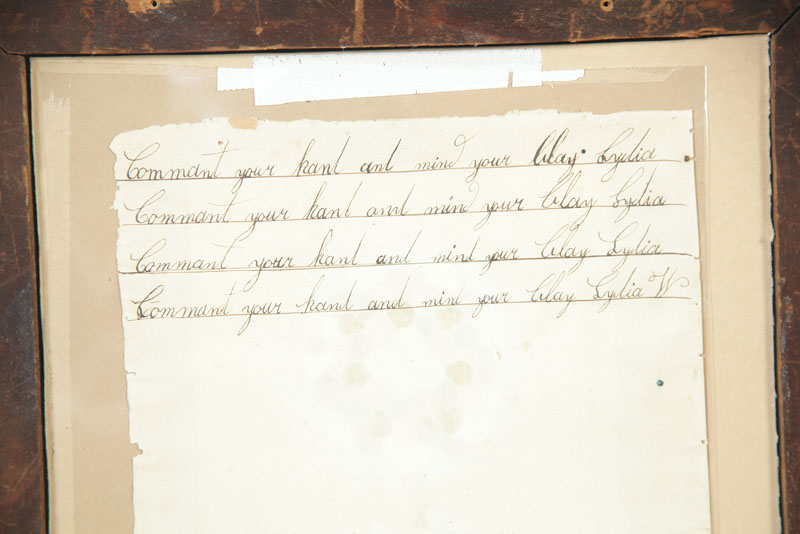 Commant your hant ant mind your Clay Lydia
Commant your hant and mind your Clay Lydia
Commant your hant and mind your Clay Lydia
Commant your hand and mind your Clay Lydia W